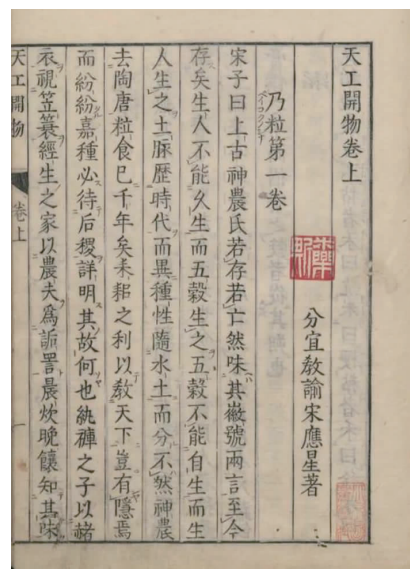 天工開物卷上
分宜教諭宋應星著
乃粒第一卷
宋子曰上古神農氏若存若亡然味其徽號兩言至今
存矣生人不能久生而五穀生之五穀不能自生而生
人生之土脈歷時代而異種性隨水土而分不然神農
去陶唐粒食已千年矣耒耜之利以教天下豈有隱焉
而紛紛嘉種必待后稷詳明其故何也紈褲之子以赭
衣視笠簑經生之家以農夫爲詬詈晨炊晚饟知其味
天工開物
卷上
一